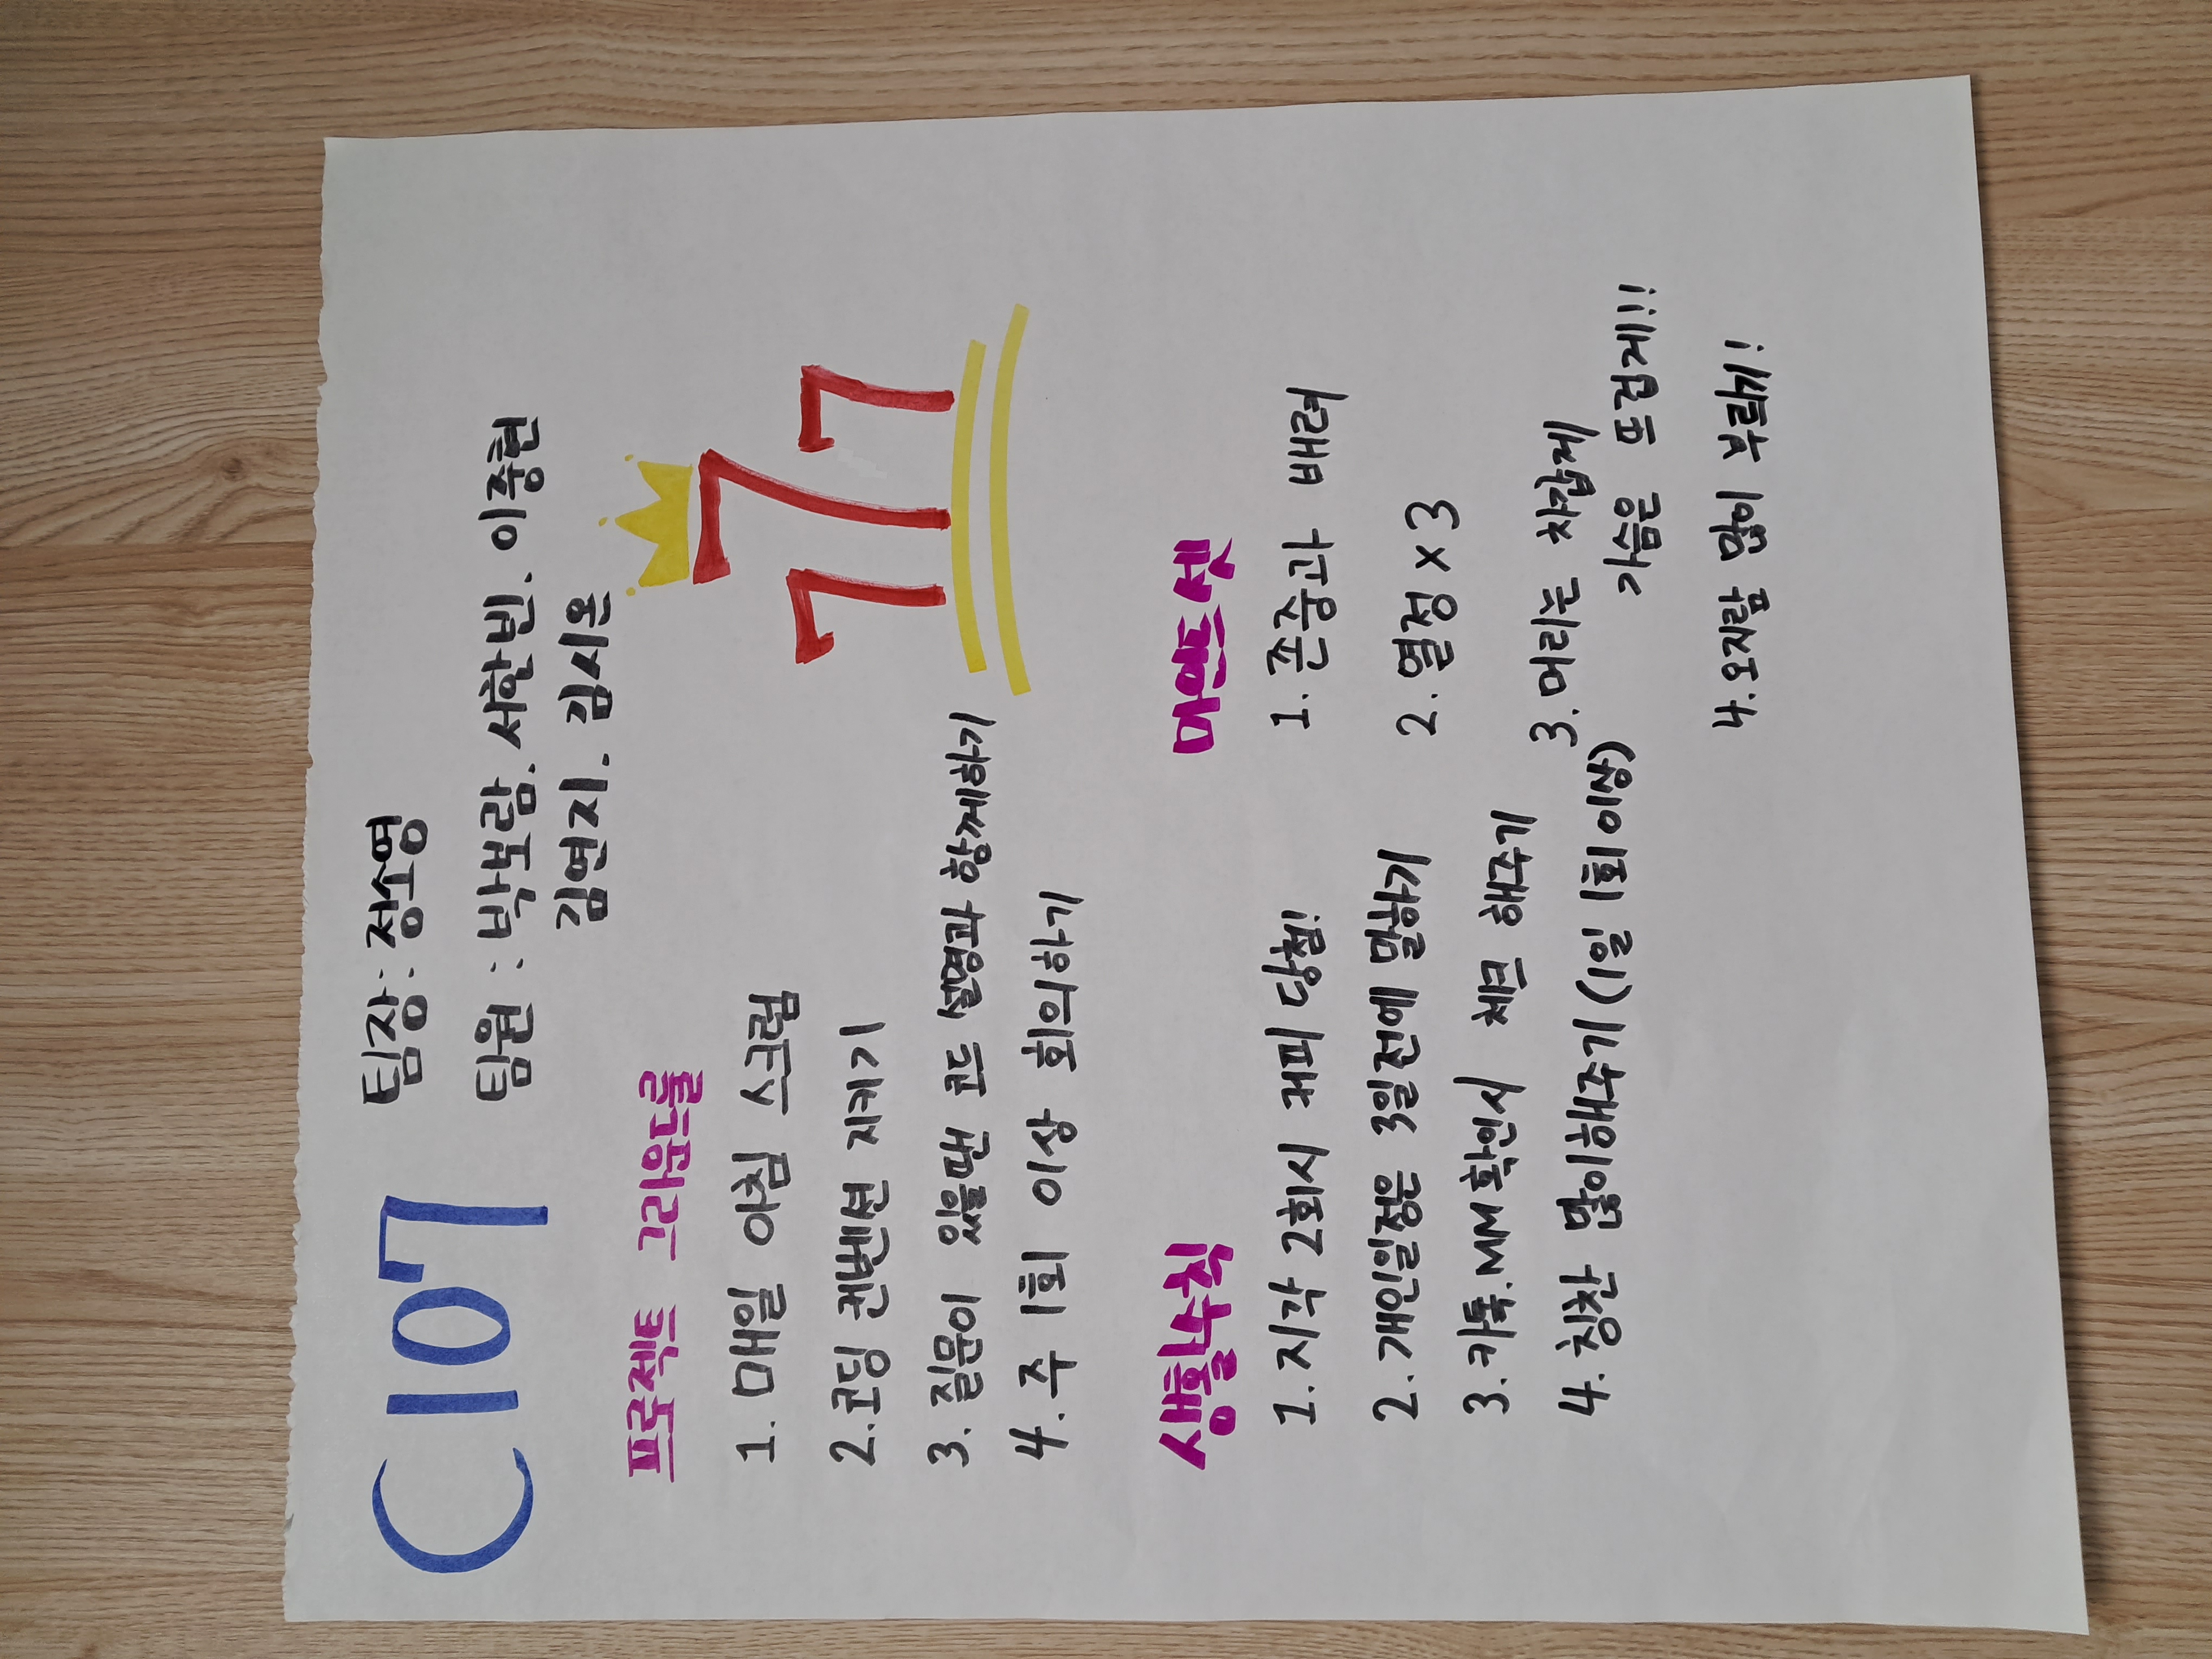 C107
팀장 : 정소영
팀원 : 박보람. 서한빈. 이중현
김연지. 김시온
프로젝트 그라운드룰
1. 매일 아침 스크럼
2. 코딩 컨벤션 지키기
3. 질문이 있을땐 코드 설명과 함께하기
4. 주 1회 이상 회의하기
777
생활수칙
1. 지각 2회시 커피 당첨!
2. 개인일정은 3일전에 말하기
3. 카톡. MM 확인시 체크 해주기
4. 칭찬 많이해주기 (1일 1회 이상)
마인드셋
1. 존중과 배려
2. 열정 x 3
3. 머리는 차갑게
가슴은 뜨겁게!!
4. 오지람 많이 부리기!